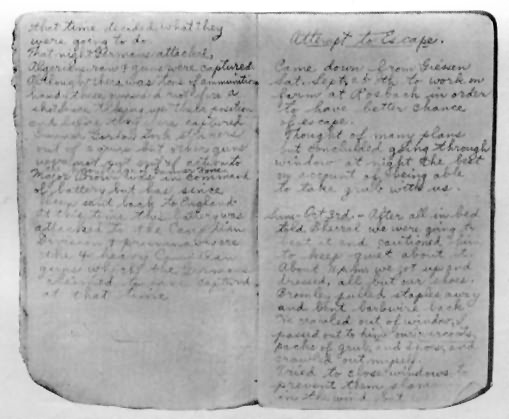 that time decided what they
were going to do.
That night Germans attacked
Algerians ran & guns were captured.
Although there was tons of ammunition
hand they
position
and before they were captured
Gunner Gordon
out of 2 guns but other guns
were not put out of action
Major was in command
of battery but has since
been sent back to England
At this time this battery was
attached to the Canadian
Division & were
the 4 heavy Canadian
guns which the Germans
claimed to have captured
at that time
Attempt to Escape.
Came down from Giessen
Sat. Sept. 25th to work on
farm at Rosbach in order
to have better chance
of escape.
Thought of many plans
but concluded going through
window at night the best
on account of being able
to take grub with us.
Sun. Oct 3rd. - After all in bed
told we were going to
beat it and cautioned him
to keep quiet about it.
About 11 p.m. we got up and
dressed, all but our shoes.
Bromley pulled staples away
and bent barbwire back
He crawled out of window, I
passed out to him our
packs of grub, and shoes, and
crawled out myself.
Tried to close windows to
prevent them
in the wind but